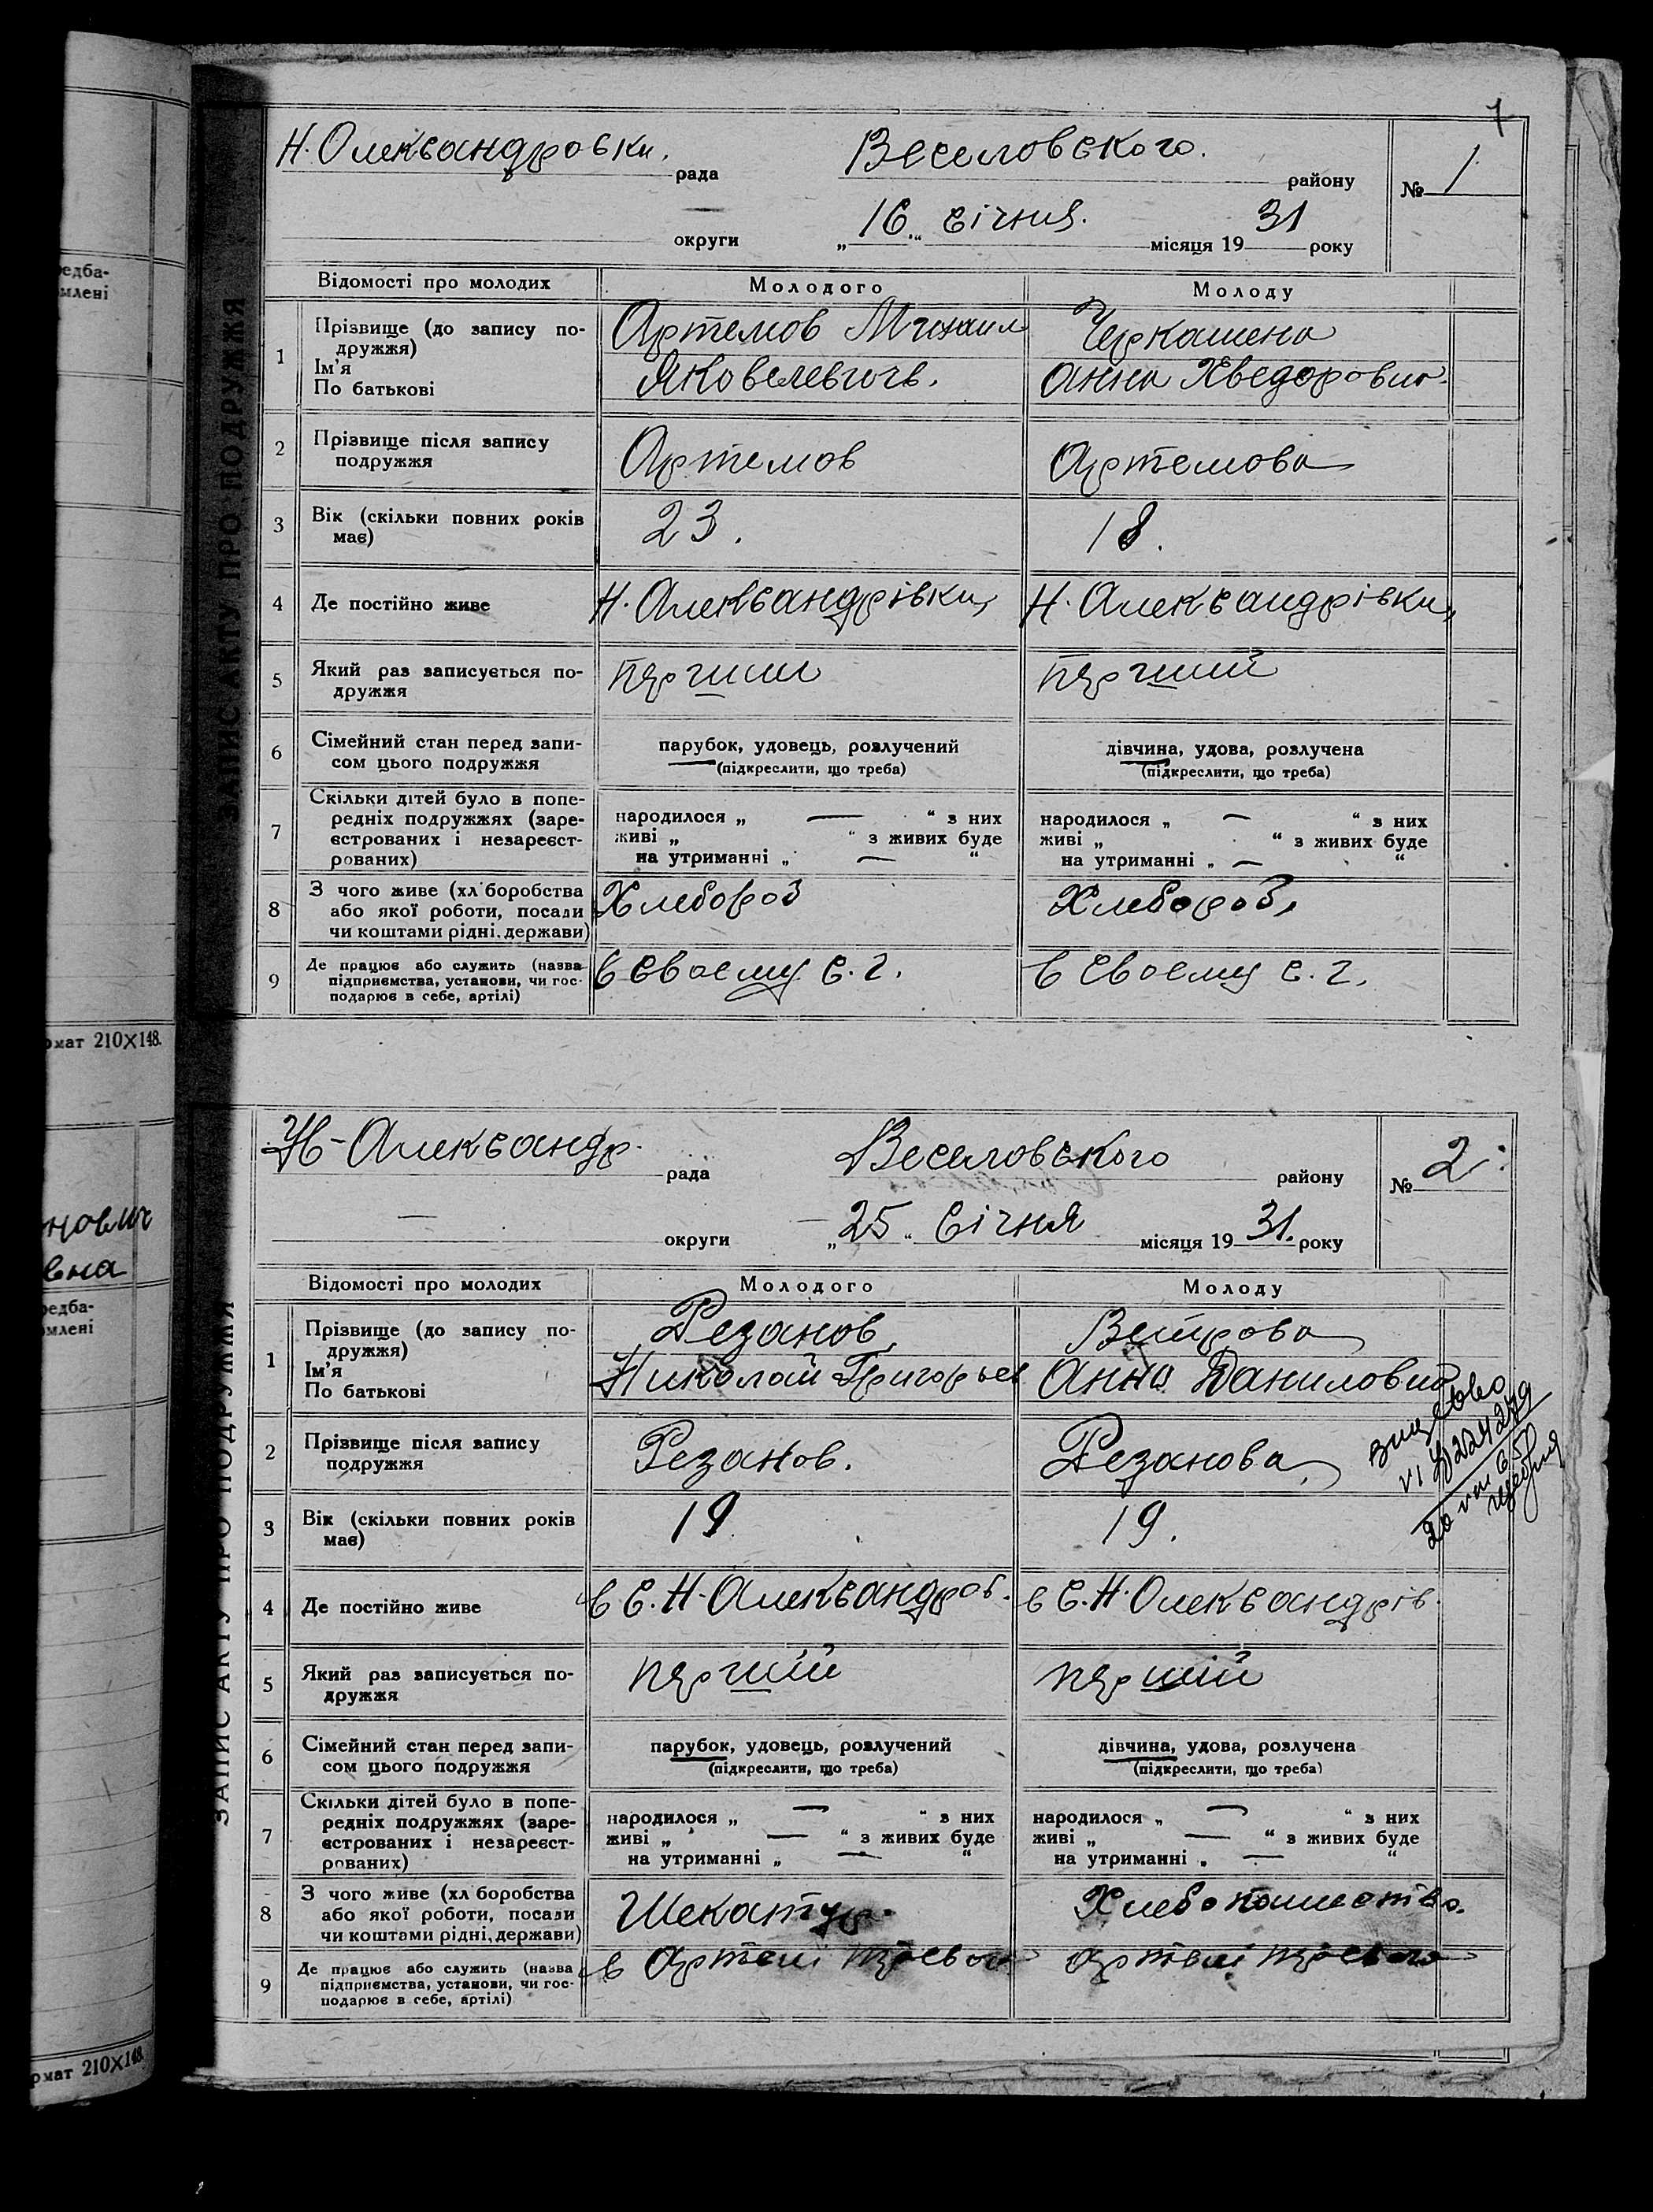 7
Н. Олександровки. рада Веселовского. району № 1
— округи „16“ січня. місяця 1931 року
ЗАПИС АКТУ ПРО ПОДРУЖЖЯ
Відомості про молодих Молодого Молоду
1 Прізвище (до запису по-
дружжя)
Ім'я
По батькові
Артемов Михаил
Яковелевичь.
Черкашена
Анна Хведоровна
2 Прізвище після запису
подружжя
Артемов Артемова
3 Вік (скільки повних років
має)
23. 18.
4 Де постійно живе Н. Александрівки, Н. Александрівки,
5 Який раз записується по-
дружжя
перший
6 Сімейний стан перед запи-
сом цього подружжя
парубок, удовець, розлучений
(підкреслити, що треба)
дівчина, удова, розлучена
(підкреслити, що треба)
7 Скільки дітей було в попе-
редніх подружжях (заре-
єстрованих і незареєст-
рованих)
народилося „ — “ з них
живі „ “ з живих буде
на утриманні „ — “
народилося „ — “ з них
живі „ “ з живих буде
на утриманні „ — “
8 З чого живе (хліборобства
або якої роботи, посади
чи коштами рідні, держави)
Хлебороб Хлебороб,
9 Де працює або служить (назва
підприємства, установи, чи гос-
подарює в себе, артілі)
в своему с. г. в своему с. г.
Н-Александр. рада Веселовського району № 2.
— округи „25“ Січня місяця 1931. року
ЗАПИС АКТУ ПРО ПОДРУЖЖЯ
Відомості про молодих Молодого Молоду
1 Прізвище (до запису по-
дружжя)
Ім'я
По батькові
Резанов
Николай Григорьев
Ветрова
Анна Даниловна
2 Прізвище після запису
подружжя
Резанов. Резанова
3 Вік (скільки повних років
має)
19 19.
4 Де постійно живе в с. Н-Александров. в с. Н. Олександрів.
5 Який раз записується по-
дружжя
перший перший
6 Сімейний стан перед запи-
сом цього подружжя
парубок, удовець, розлучений
(підкреслити, що треба)
дівчина, удова, розлучена
(підкреслити, що треба)
7 Скільки дітей було в попе-
редніх подружжях (заре-
єстрованих і незареєст-
рованих)
народилося „ — “ з них
живі „ — “ з живих буде
на утриманні „ — “
народилося „ — “ з них
живі „ — “ з живих буде
на утриманні „ — “
8 З чого живе (хліборобства
або якої роботи, посади
чи коштами рідні, держави)
Шекатур. Хлебопашество.
9 Де працює або служить (назва
підприємства, установи, чи гос-
подарює в себе, артілі)
в Артелі Артелі
редба-
млені
рмат 210×148.
нович
вна
редба-
млені
рмат 210×148